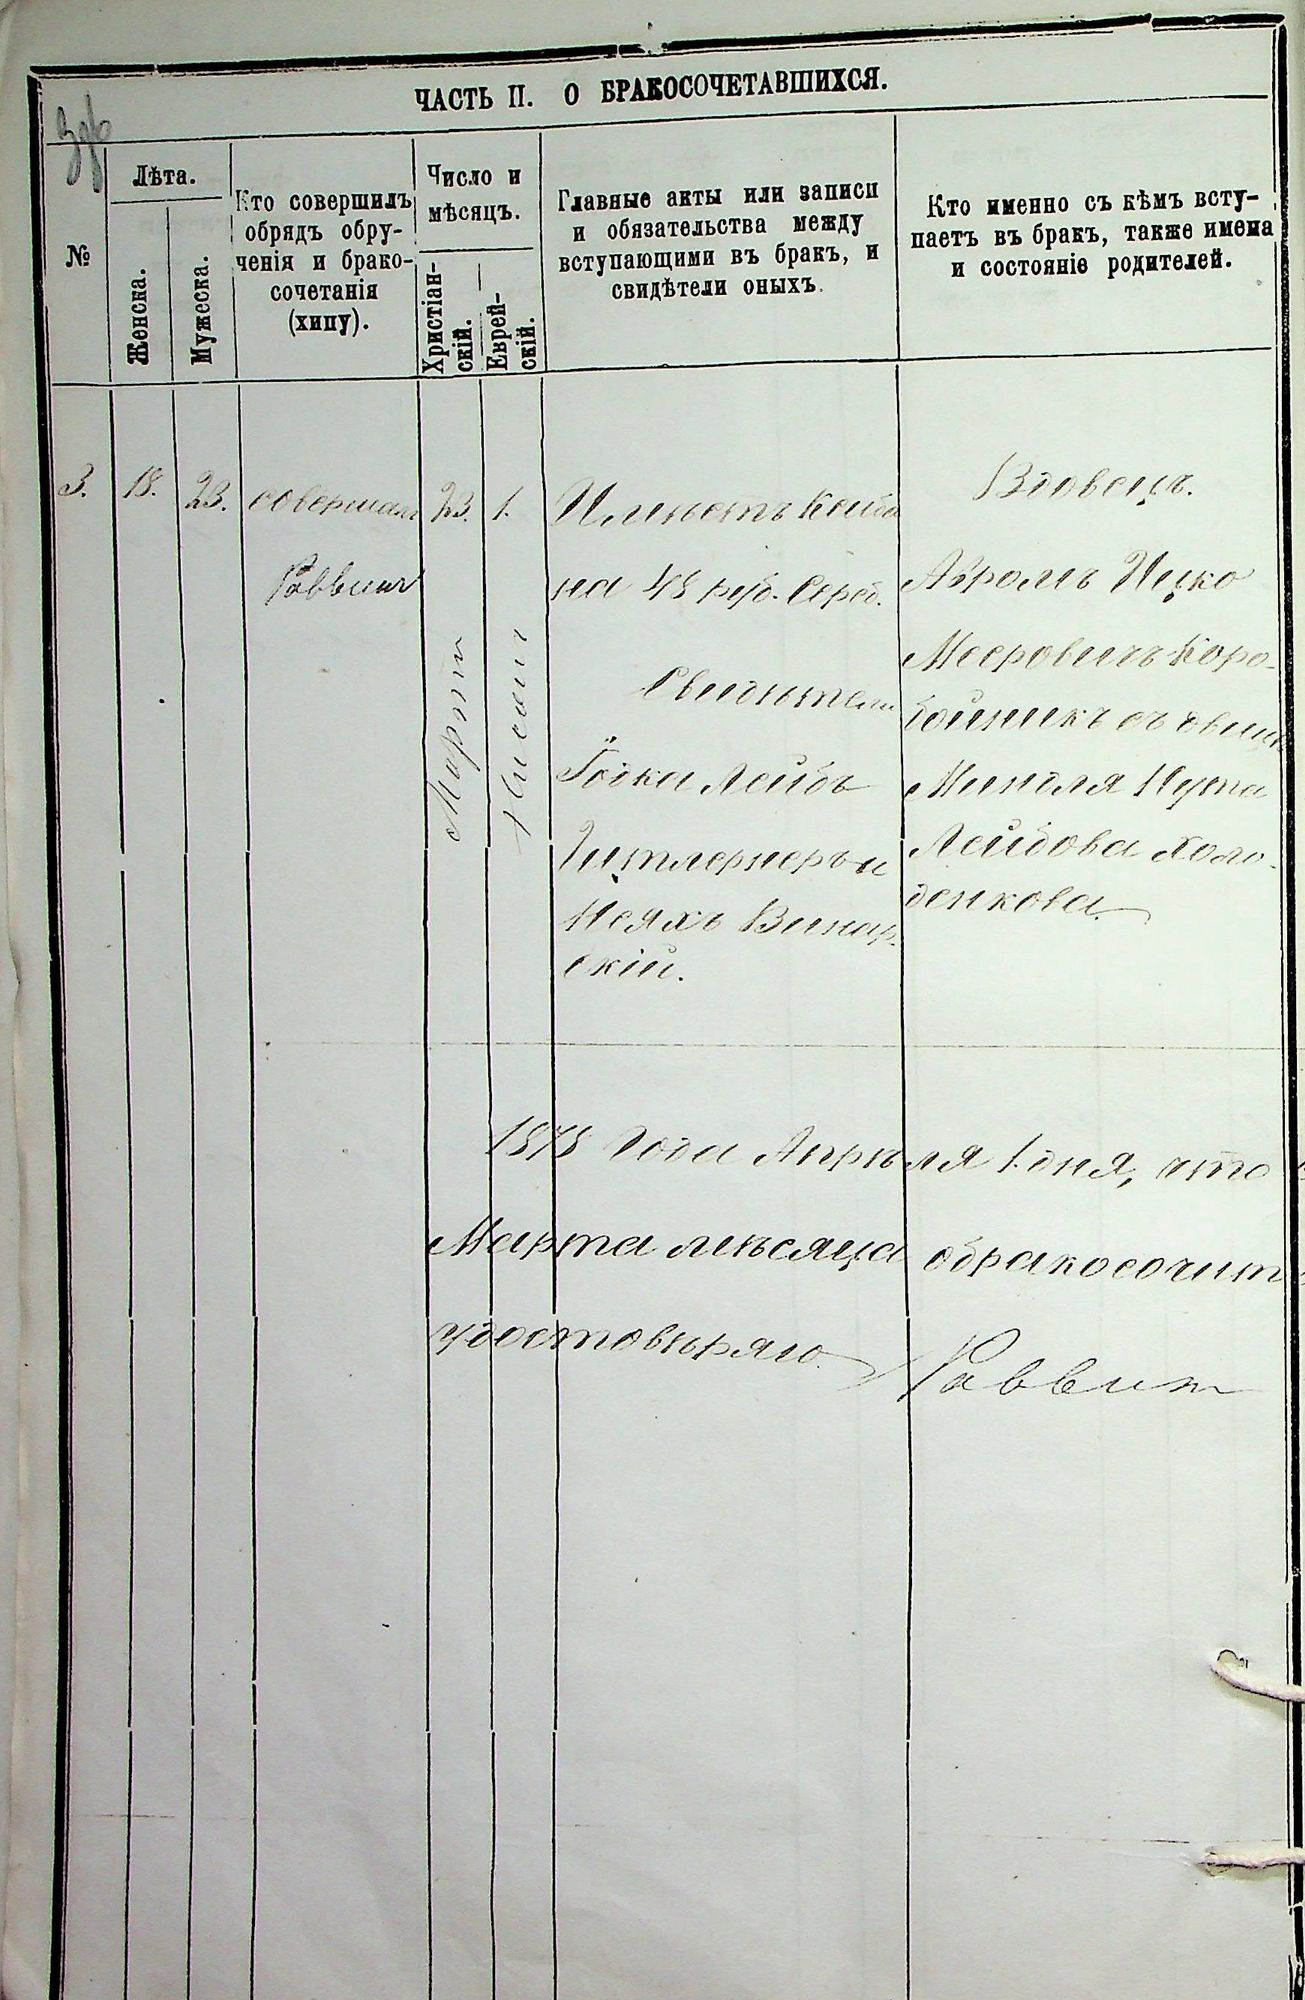 ЧАСТЬ II. О БРАКОСОЧЕТАВШИХСЯ.
№
Лѣта.
Женска.
Мужеска.
Кто совершилъ
обрядъ обру-
ченія и брако-
сочетанія
(хипу).
Число и
мѣсяцъ.
Христіан-
скій.
Еврей-
скій.
Главные акты или записи
и обязательства между
вступающими въ бракъ, и
свидѣтели оныхъ.
Кто именно съ кѣмъ всту-
паетъ въ бракъ, также имена
и состояніе родителей.
3.
18.
23.
совершалъ
Раввинъ
23.
Марта
1.
Нисанъ
на 48 руб. Сереб.
Свидѣтели
Іодка Лейбъ
и
Винар-
скій.
Вдовецъ.
Авромъ Ицко
Мееровичъ Коро-
бойникъ съ дѣвиц
Миндля
Лейбова Холо-
денкова.
1878 Года Апрѣля 1 дня, что
Марта мѣсяца обракосочит
удостовѣряю.
Раввин